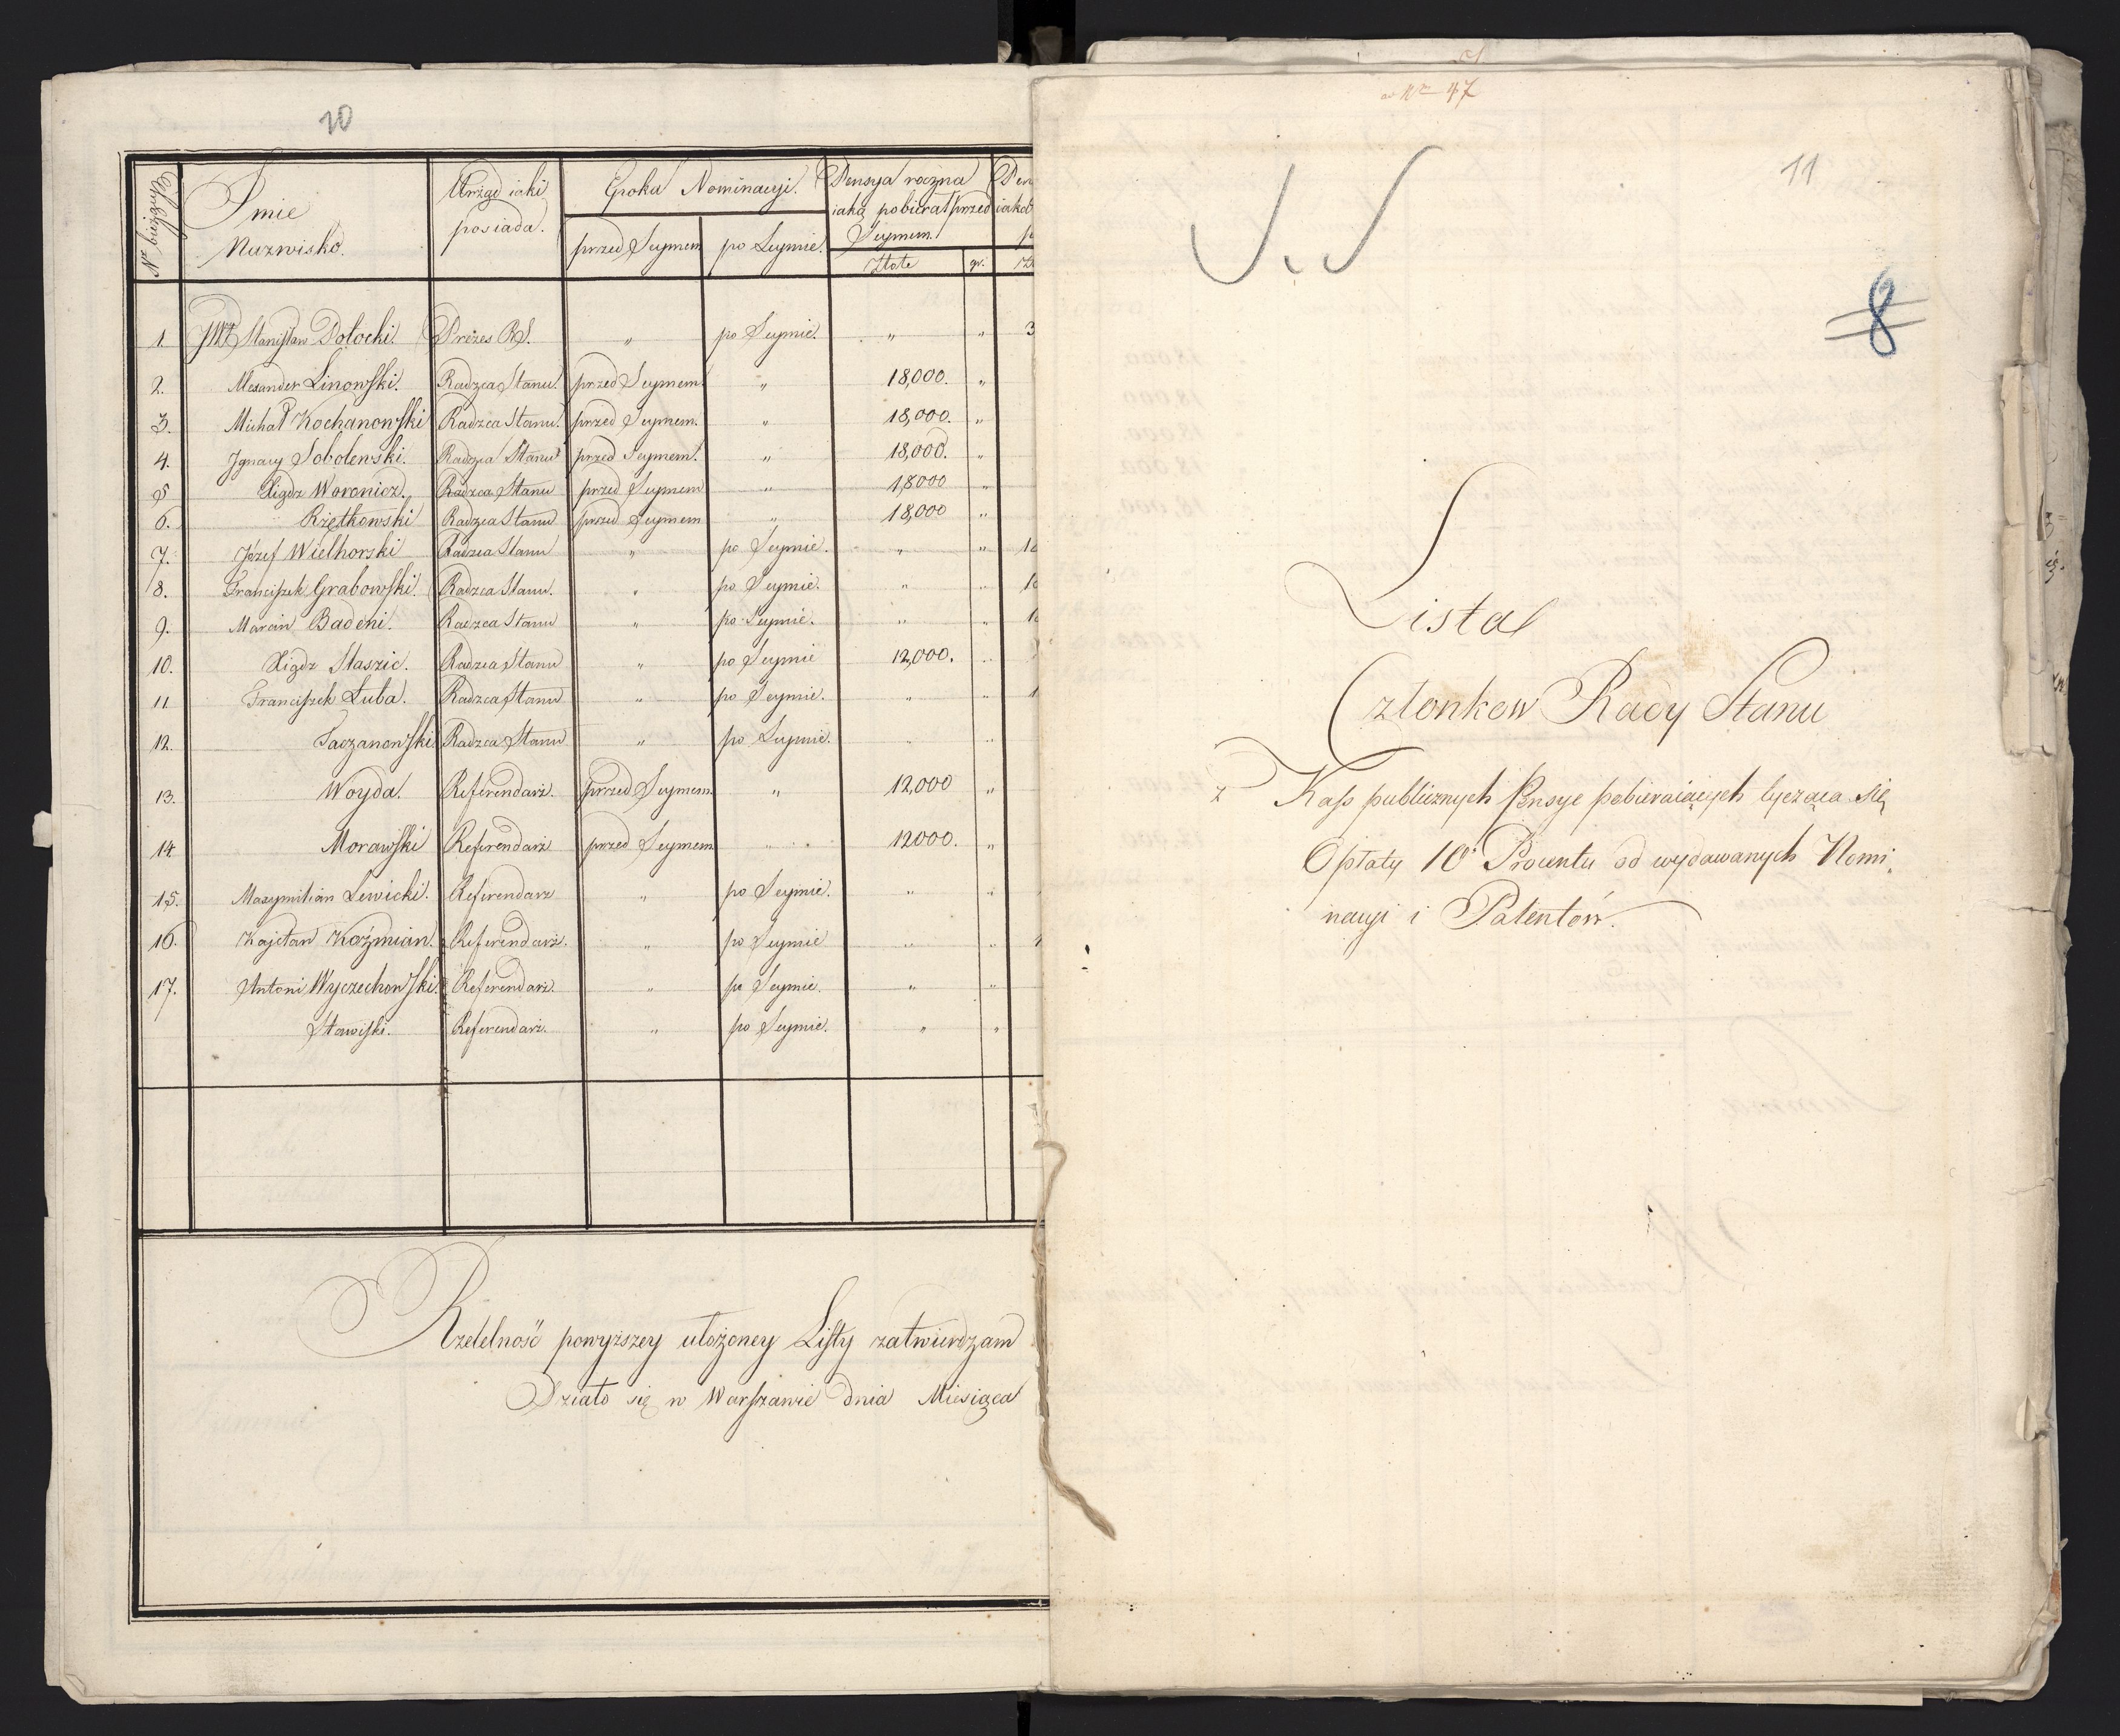 10
N. bieżący
Imie
Nazwisko.
Urząd iaki
posiada.
Epoka Nominacyi.
przed Seymem
po Seymie.
Pensya roczna
iaką pobierał przed
Seymem.
złote
gr.
1. JW Stanisław Potocki. Prezes RS. " po Seymie. " " 3
2. Alexander Linowski. Radzca Stanu. przed Seymem. " 18,000. "
3. Michał Kochanowski Radzca Stanu. przed Seymem. " 18,000. "
4. Ignacy Sobolewski. Radzca Stanu przed Seymem. " 18,000. "
5 Xiądz Woronicz. Radzca Stanu przed Seymem " 18,000 "
6. Rzętkowski Radzca Stanu przed Seymem " 18,000 "
7. Józef Wielhorski Radzca Stanu " po Seymie. " "
8. Franciszek Grabowski. Radzca Stanu. " po Seymie. " "
9. Marcin Badeni. Radzca Stanu " po Seymie. " "
10. Xiądz Staszic. Radzca Stanu " po Seymie 12,000. "
11 Franciszek Łuba. Radzca Stanu " po Seymie. " "
12. Taczanowski Radzca Stanu " po Seymie. " "
13. Woyda. Referendarz. przed Seymem. " 12,000 "
14. Morawski Referendarz przed Seymem " 12000. "
15. Maxymilian Lewicki. Referendarz " po Seymie. " "
16. Kajetan Koźmian. Referendarz. " po Seymie " "
17. Antoni Wyczechowski. Referendarz. " po Seymie. " "
Stawiski. Referendarz. " po Seymie. " "
Rzetelność powyższey ułożoney Listy zatwierdzam
Działo się w Warszawie dnia Miesiąca
Nr 47
11
8
Lista
Członkow Rady Stanu
z Kass publicznych Pensye pobieraiących tycząca się
Opłaty 10 Procentu od wydawanych Nomi.
nacyi i Patentów.